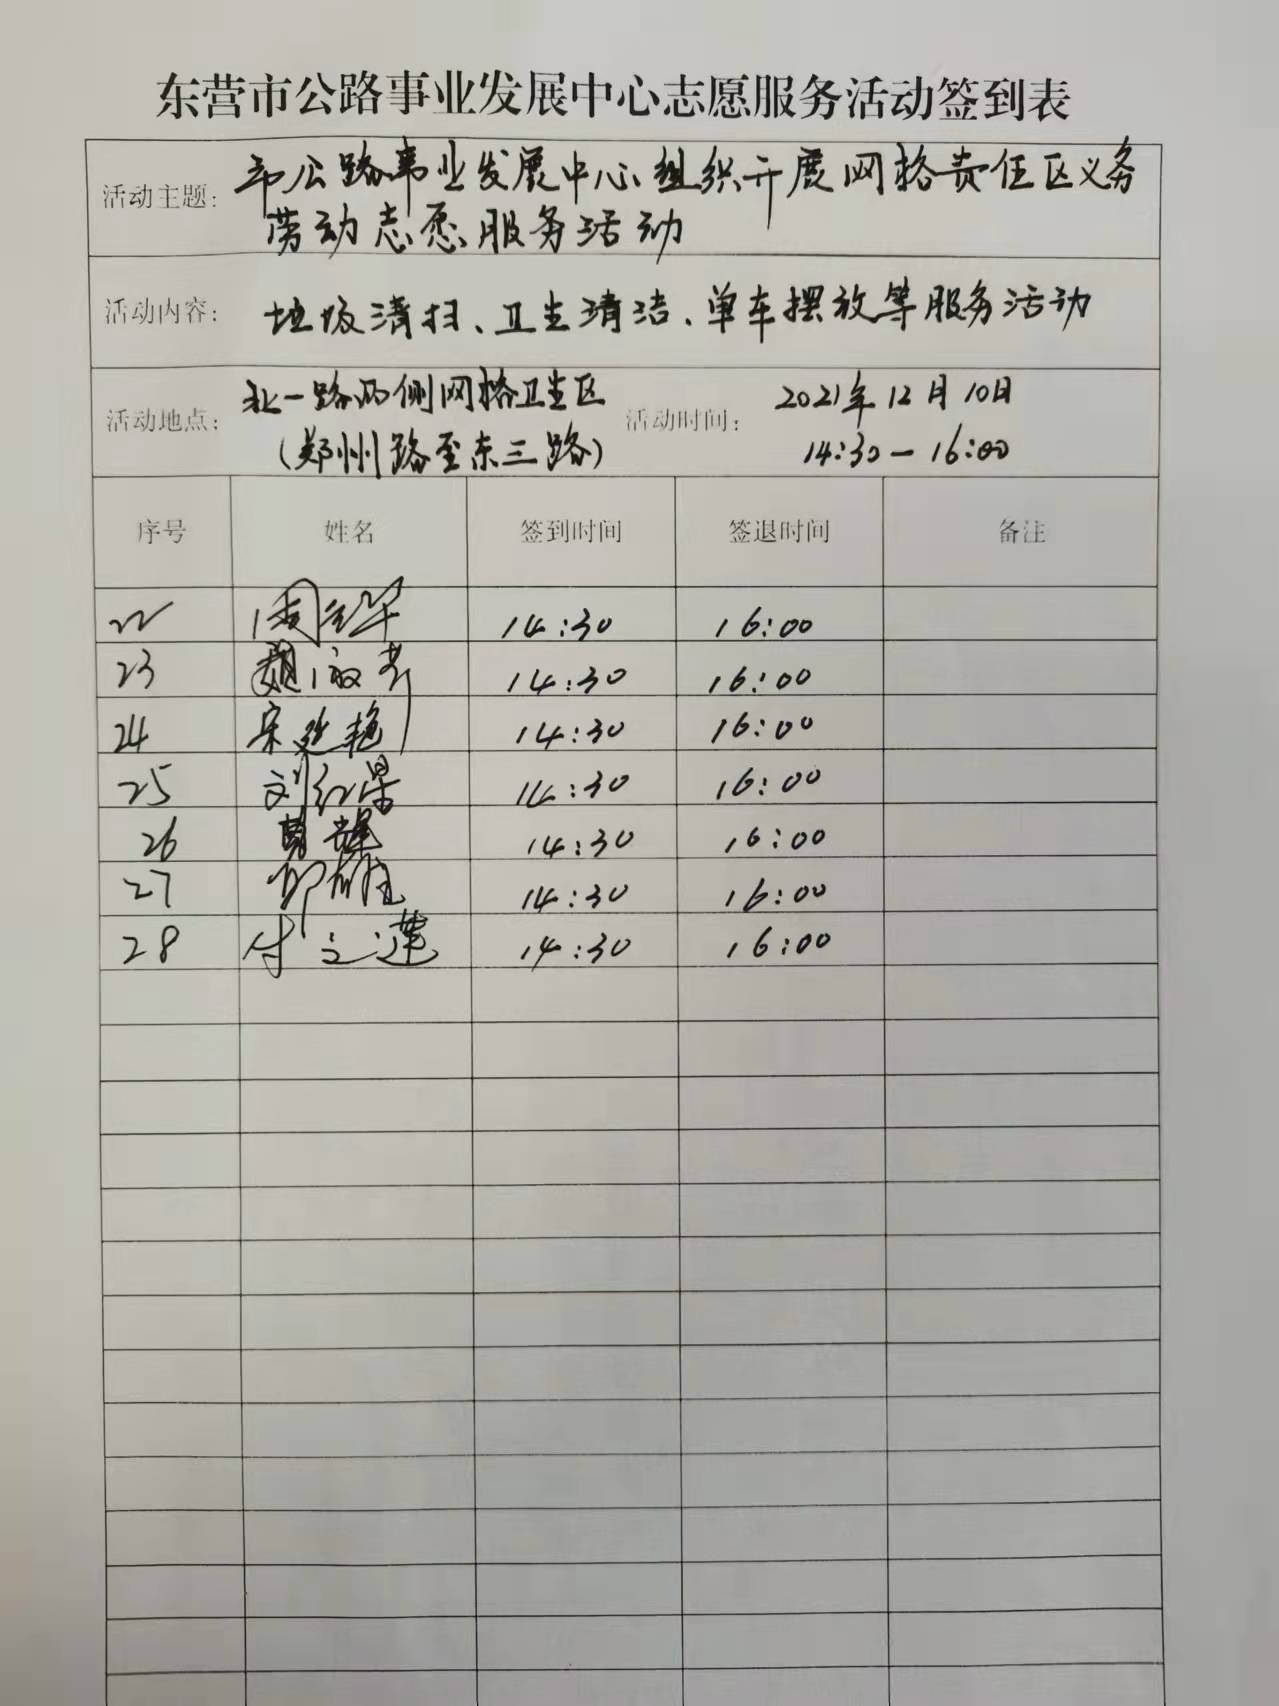 东营市公路事业发展中心志愿服务活动签到表
活动主题: 市公路事业发展中心组织开展网格责任区义务
劳动志愿服务活动
活动内容: 垃圾清扫、卫生清洁、单车摆放等服务活动
活动地点: 北一路两侧网格卫生区 活动时间: 2021年12月10日
(郑州路至东三路) 14:30—16:00
序号 姓名 签到时间 签退时间 备注
22 14:30 16:00
23 14:30 16:00
24 宋延艳 14:30 16:00
25 刘红 14:30 16:00
26 14:30 16:00
27 14:30 16:00
28 付之莲 14:30 16:00